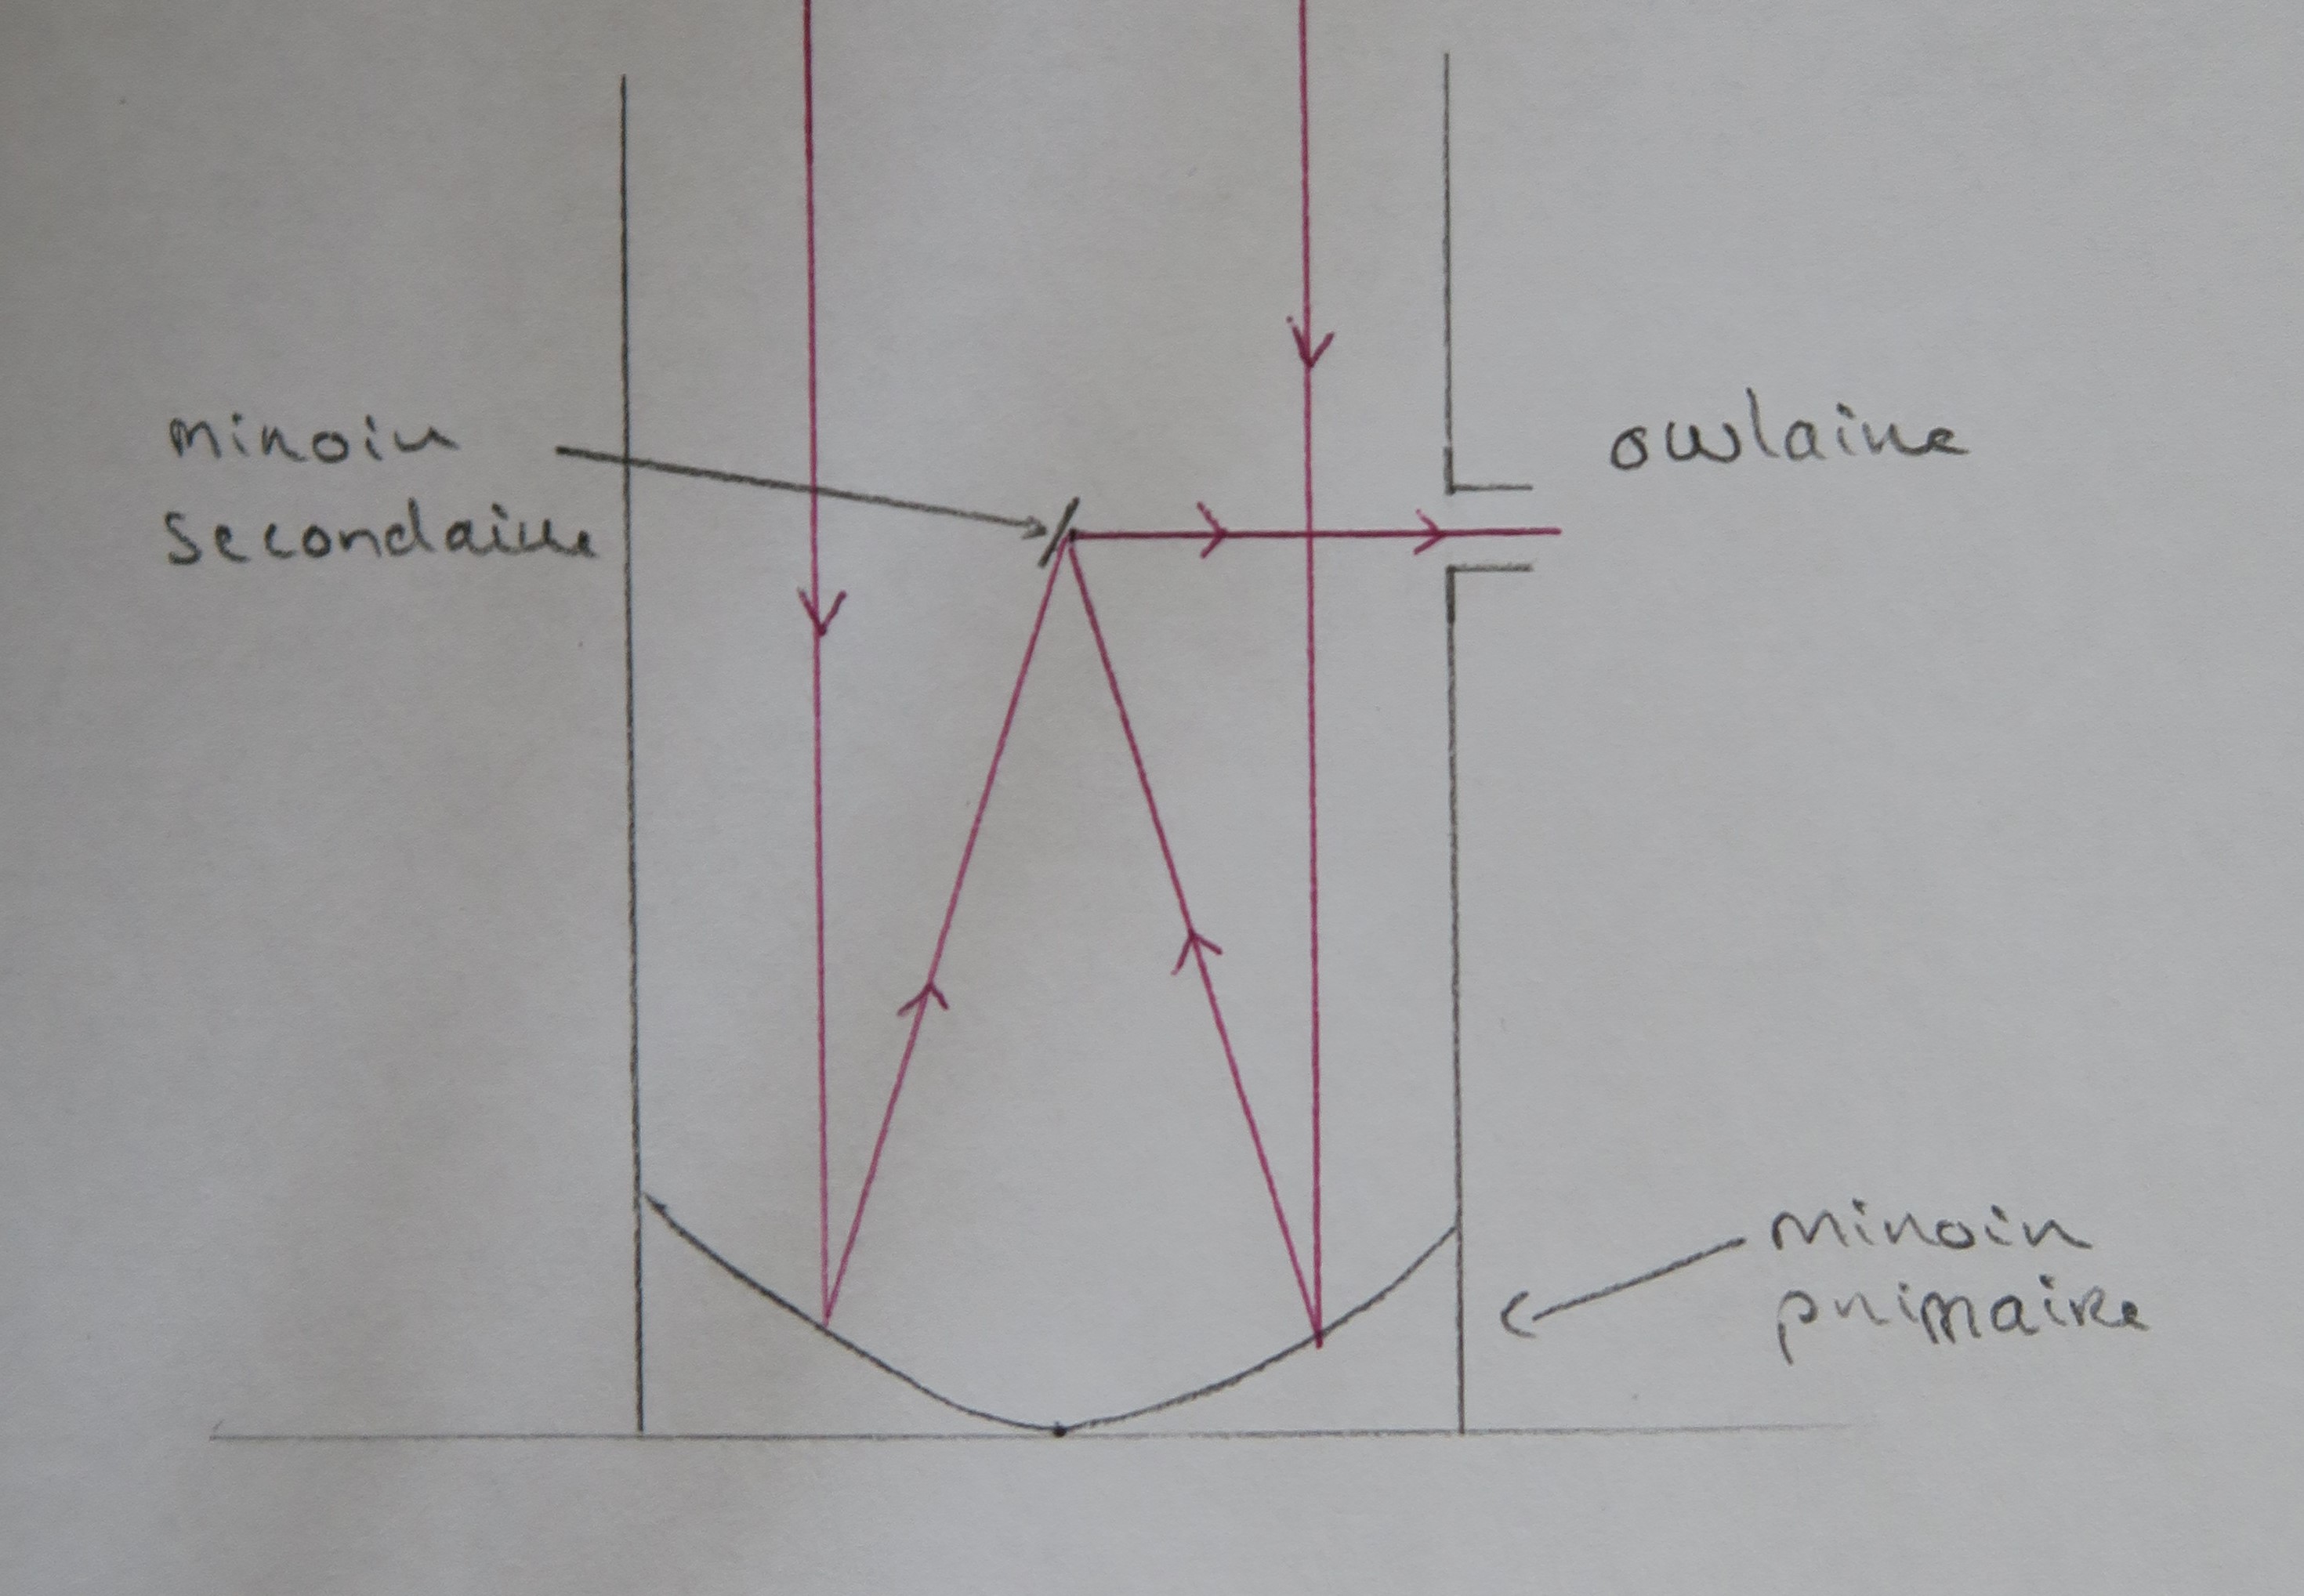 miroir
secondaire
oculaire
miroir
primaire